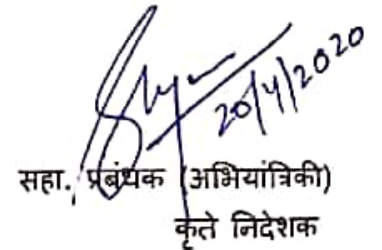 20/4/2020
सहा. प्रबंधक (अभियांत्रिकी)
कृते निदेशक